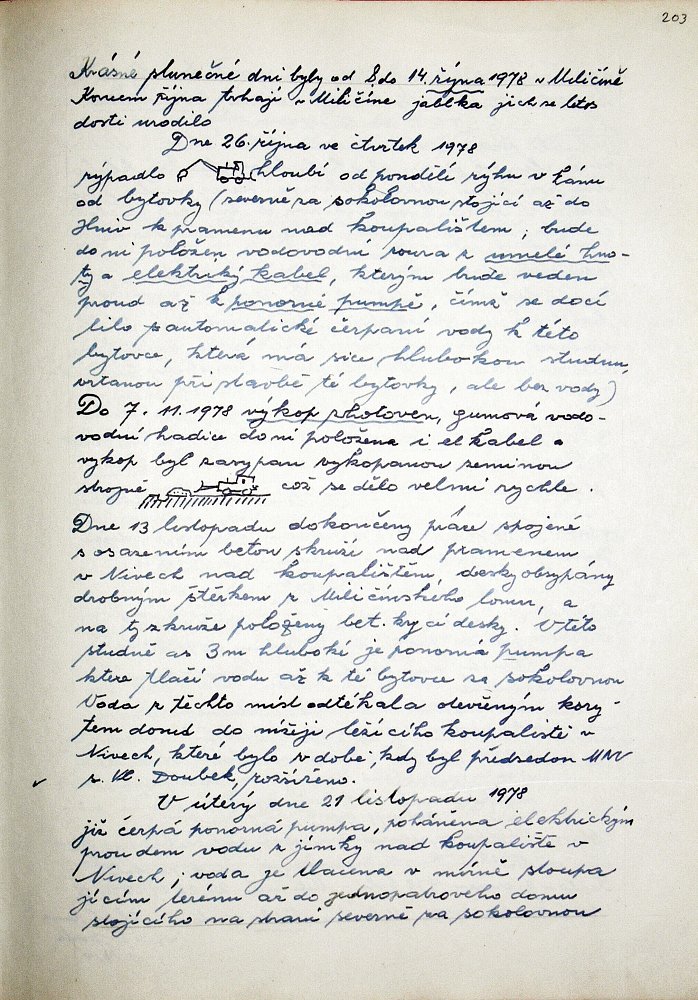 203
Krásné slunečné dni byly od 8 do 14. října 1978 v Miličíně
Koncem října trhají v Miličíne jablka jich se letos
dosti urodilo
Dne 26. října ve čtvrtek 1978
rýpadlo hloubí od pondělí rýhu v Lánu
od bytovky (severně za sokolovnou stojící až do
Hniv k pramenu nad koupalištem; bude
do ní položen vodovodní roura z umělé hmo-
ty a elektriký kabel, kterým bude veden
proud až k ponorné pumpě, čímž se docí
lilo zautomatické čerpaní vody k této
bytovce, která má sice hlubokou studnu,
vrtanou při stavbě té bytovky, ale bez vody)
Do 7. 11. 1978 výkop zhotoven, gumová vodo-
vodní hadice do ní položena i el kabel a
vykop byl zasypan vykopanou zeminou
strojně což se dělo velmi rychle.
Dne 13 listopadu dokončeny práce spojené
s osazením beton skruží nad pramenem
v Nivech nad koupalištěm, desky obsypány
drobným štěrkem z Miličínskeho lomu, a
na ty zkruže položeny bet. krycí desky. V této
studně as 3m hluboké je ponorná pumpa
ktere tlačí vodu až k té bytovce za sokolovnou
Voda z těchto míst odtékala otevřeným kory-
tem dosud do nížeji ležícího koupaliště v
Nivech, které bylo v době, kdy byl předsedou MNV
s. Vl. Doubek, rozšířeno.
V úterý dne 21 listopadu 1978
již čerpá ponorná pumpa, poháněna elektrickým
proudem vodu z jímky nad koupaliště v
Nivech; voda je tlacena v mírně stoupa
jícím terénu až do jednopatrového domu
stojícího na straní severně za sokolovnou